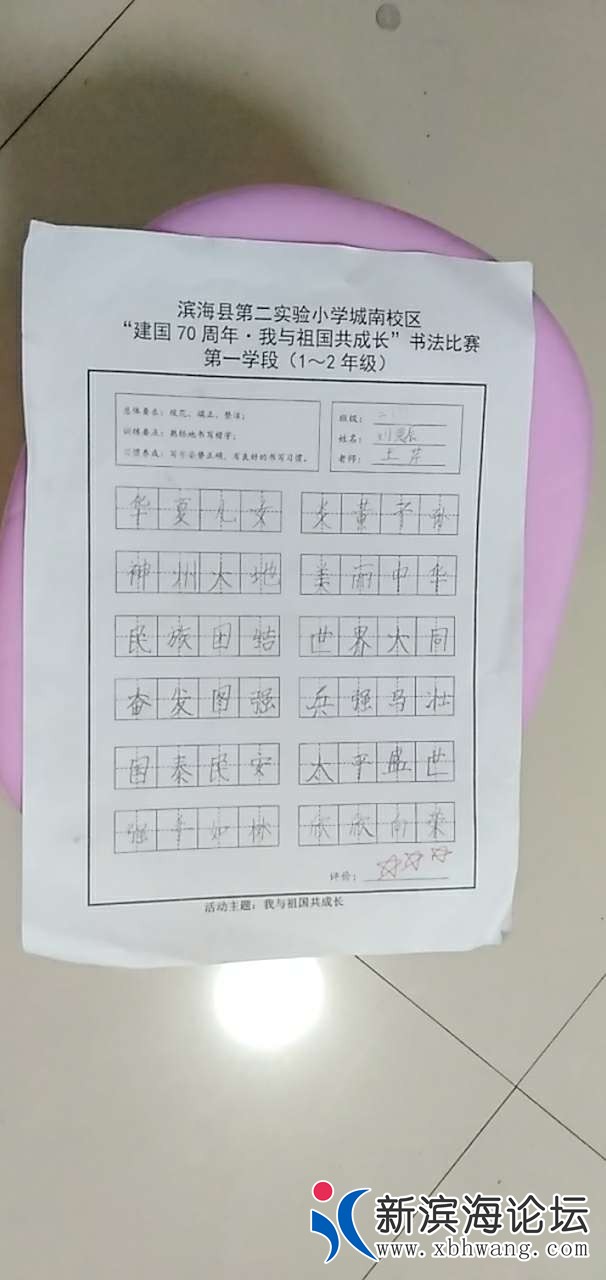 滨海县第二实验小学城南校区
“建国70周年·我与祖国共成长”书法比赛
第一学段（1～2年级）
总体要求：规范、端正、整洁；
训练要点：熟练地书写楷字；
习惯养成：写字姿势正确，有良好的书写习惯。
班级：
姓名：刘
老师：
华夏儿女 炎黄子孙
神州大地 美丽中华
民族团结 世界大同
奋发图强 兵强马壮
国泰民安 太平盛世
强手如林 欣欣向荣
评价：
活动主题：我与祖国共成长
新滨海论坛
www.xbhwang.com